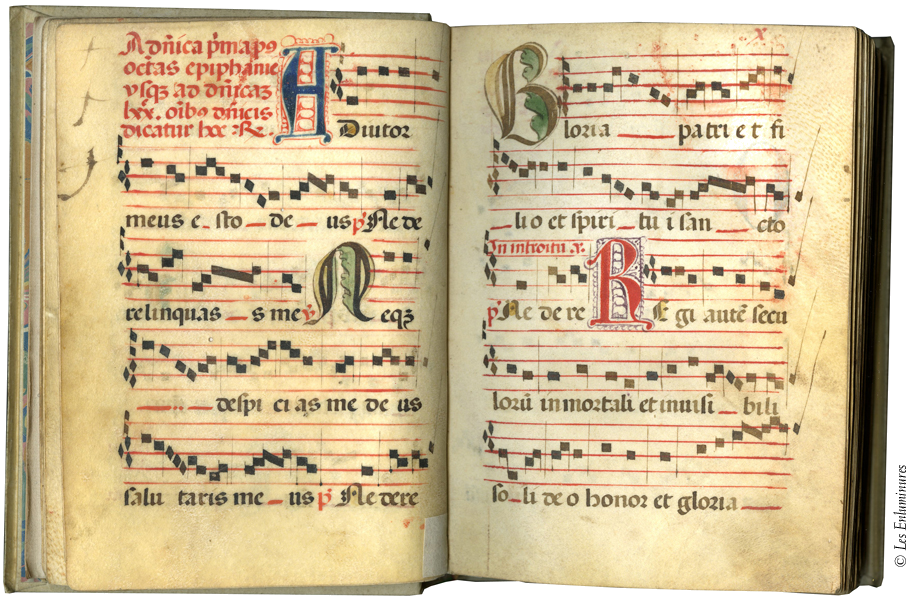 A dñica p̃ma pꝰ
octãs epiphanie
vsqꝫ ad dñicaꝫ
lxx. oĩbꝰ dñicis
dicatur hec R̃.
A Diutor
meus e sto de us p̃ Ne de
relinquas s me ỹ N eqꝫ
despi ci as me de us
salu taris me us p̃ Ne dere
X
G loria patri e t fi
li o et spiri tu i san cto
In introitu a.
p̃ Ne de re R E gi autẽ secu
lorũ in mortali et inuisi bili
so li de o honor et gloria
© Les Enluminures